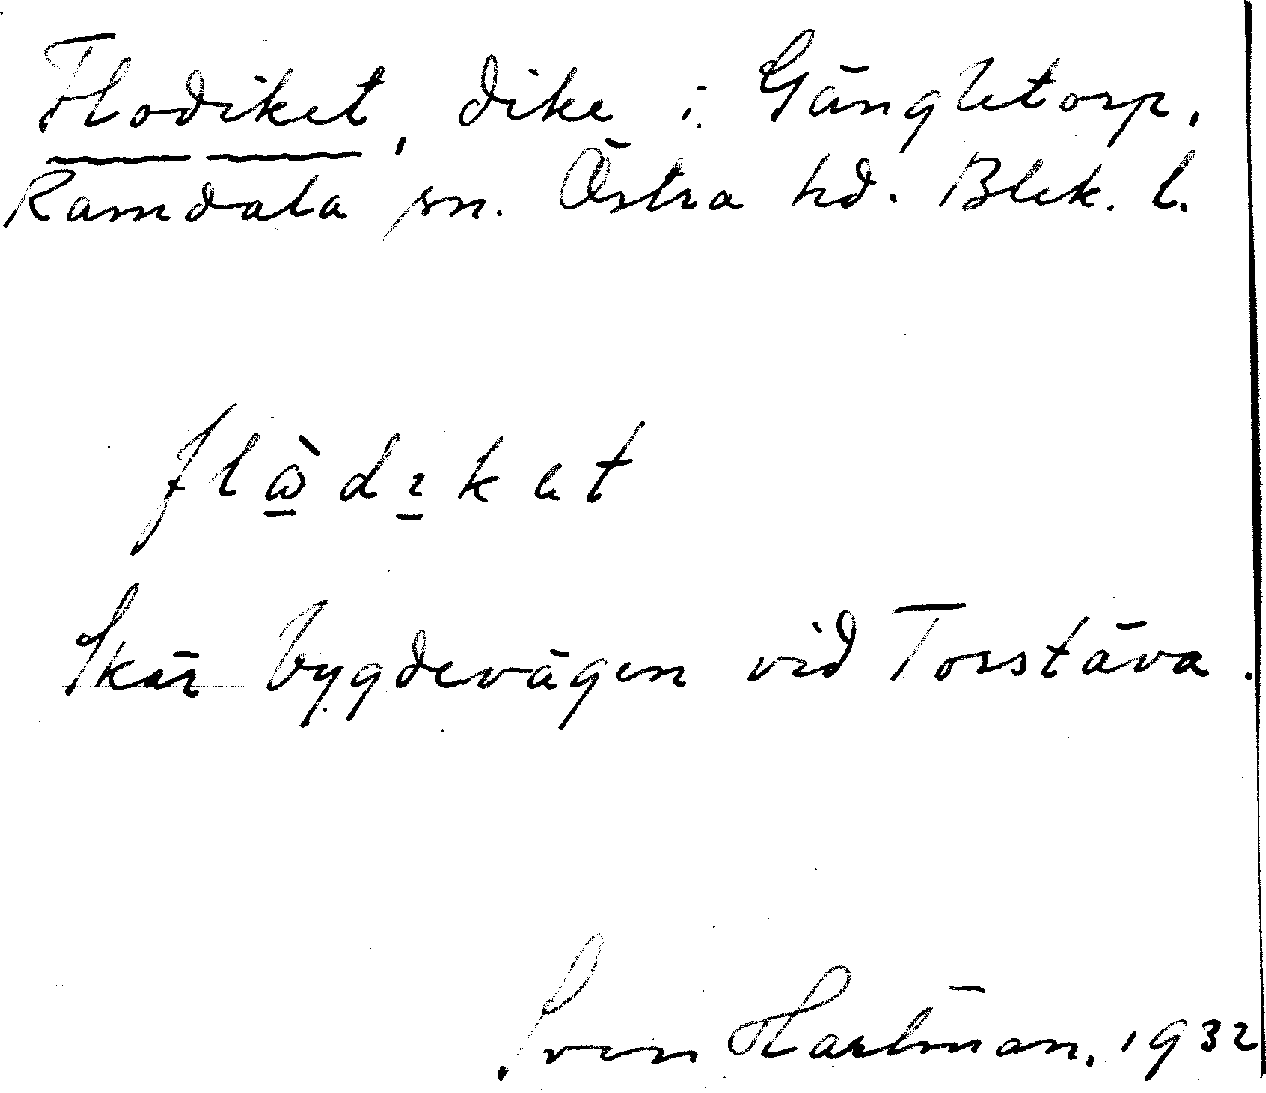 Flodiket, dike i Gängletorp,
Ramdala sn. Östra hd. Blek. l.
flὼ̠di̠kət
Skär bygdevägen vid Torstäva.
Sven Hartman, 1932